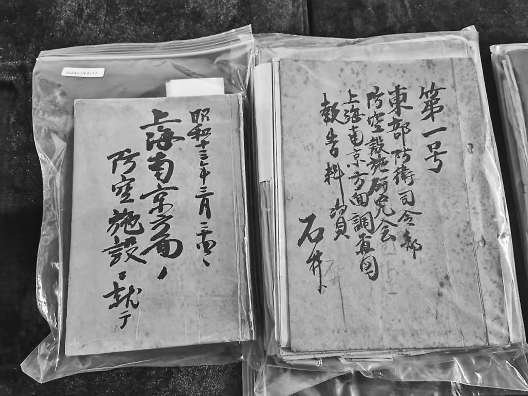 昭和十三年三月
上海南京方面ノ
防空施設ニ就テ
第一号
東部防衛司令部
防空設施研究会
上海南京方面調査団
報告資料
石井